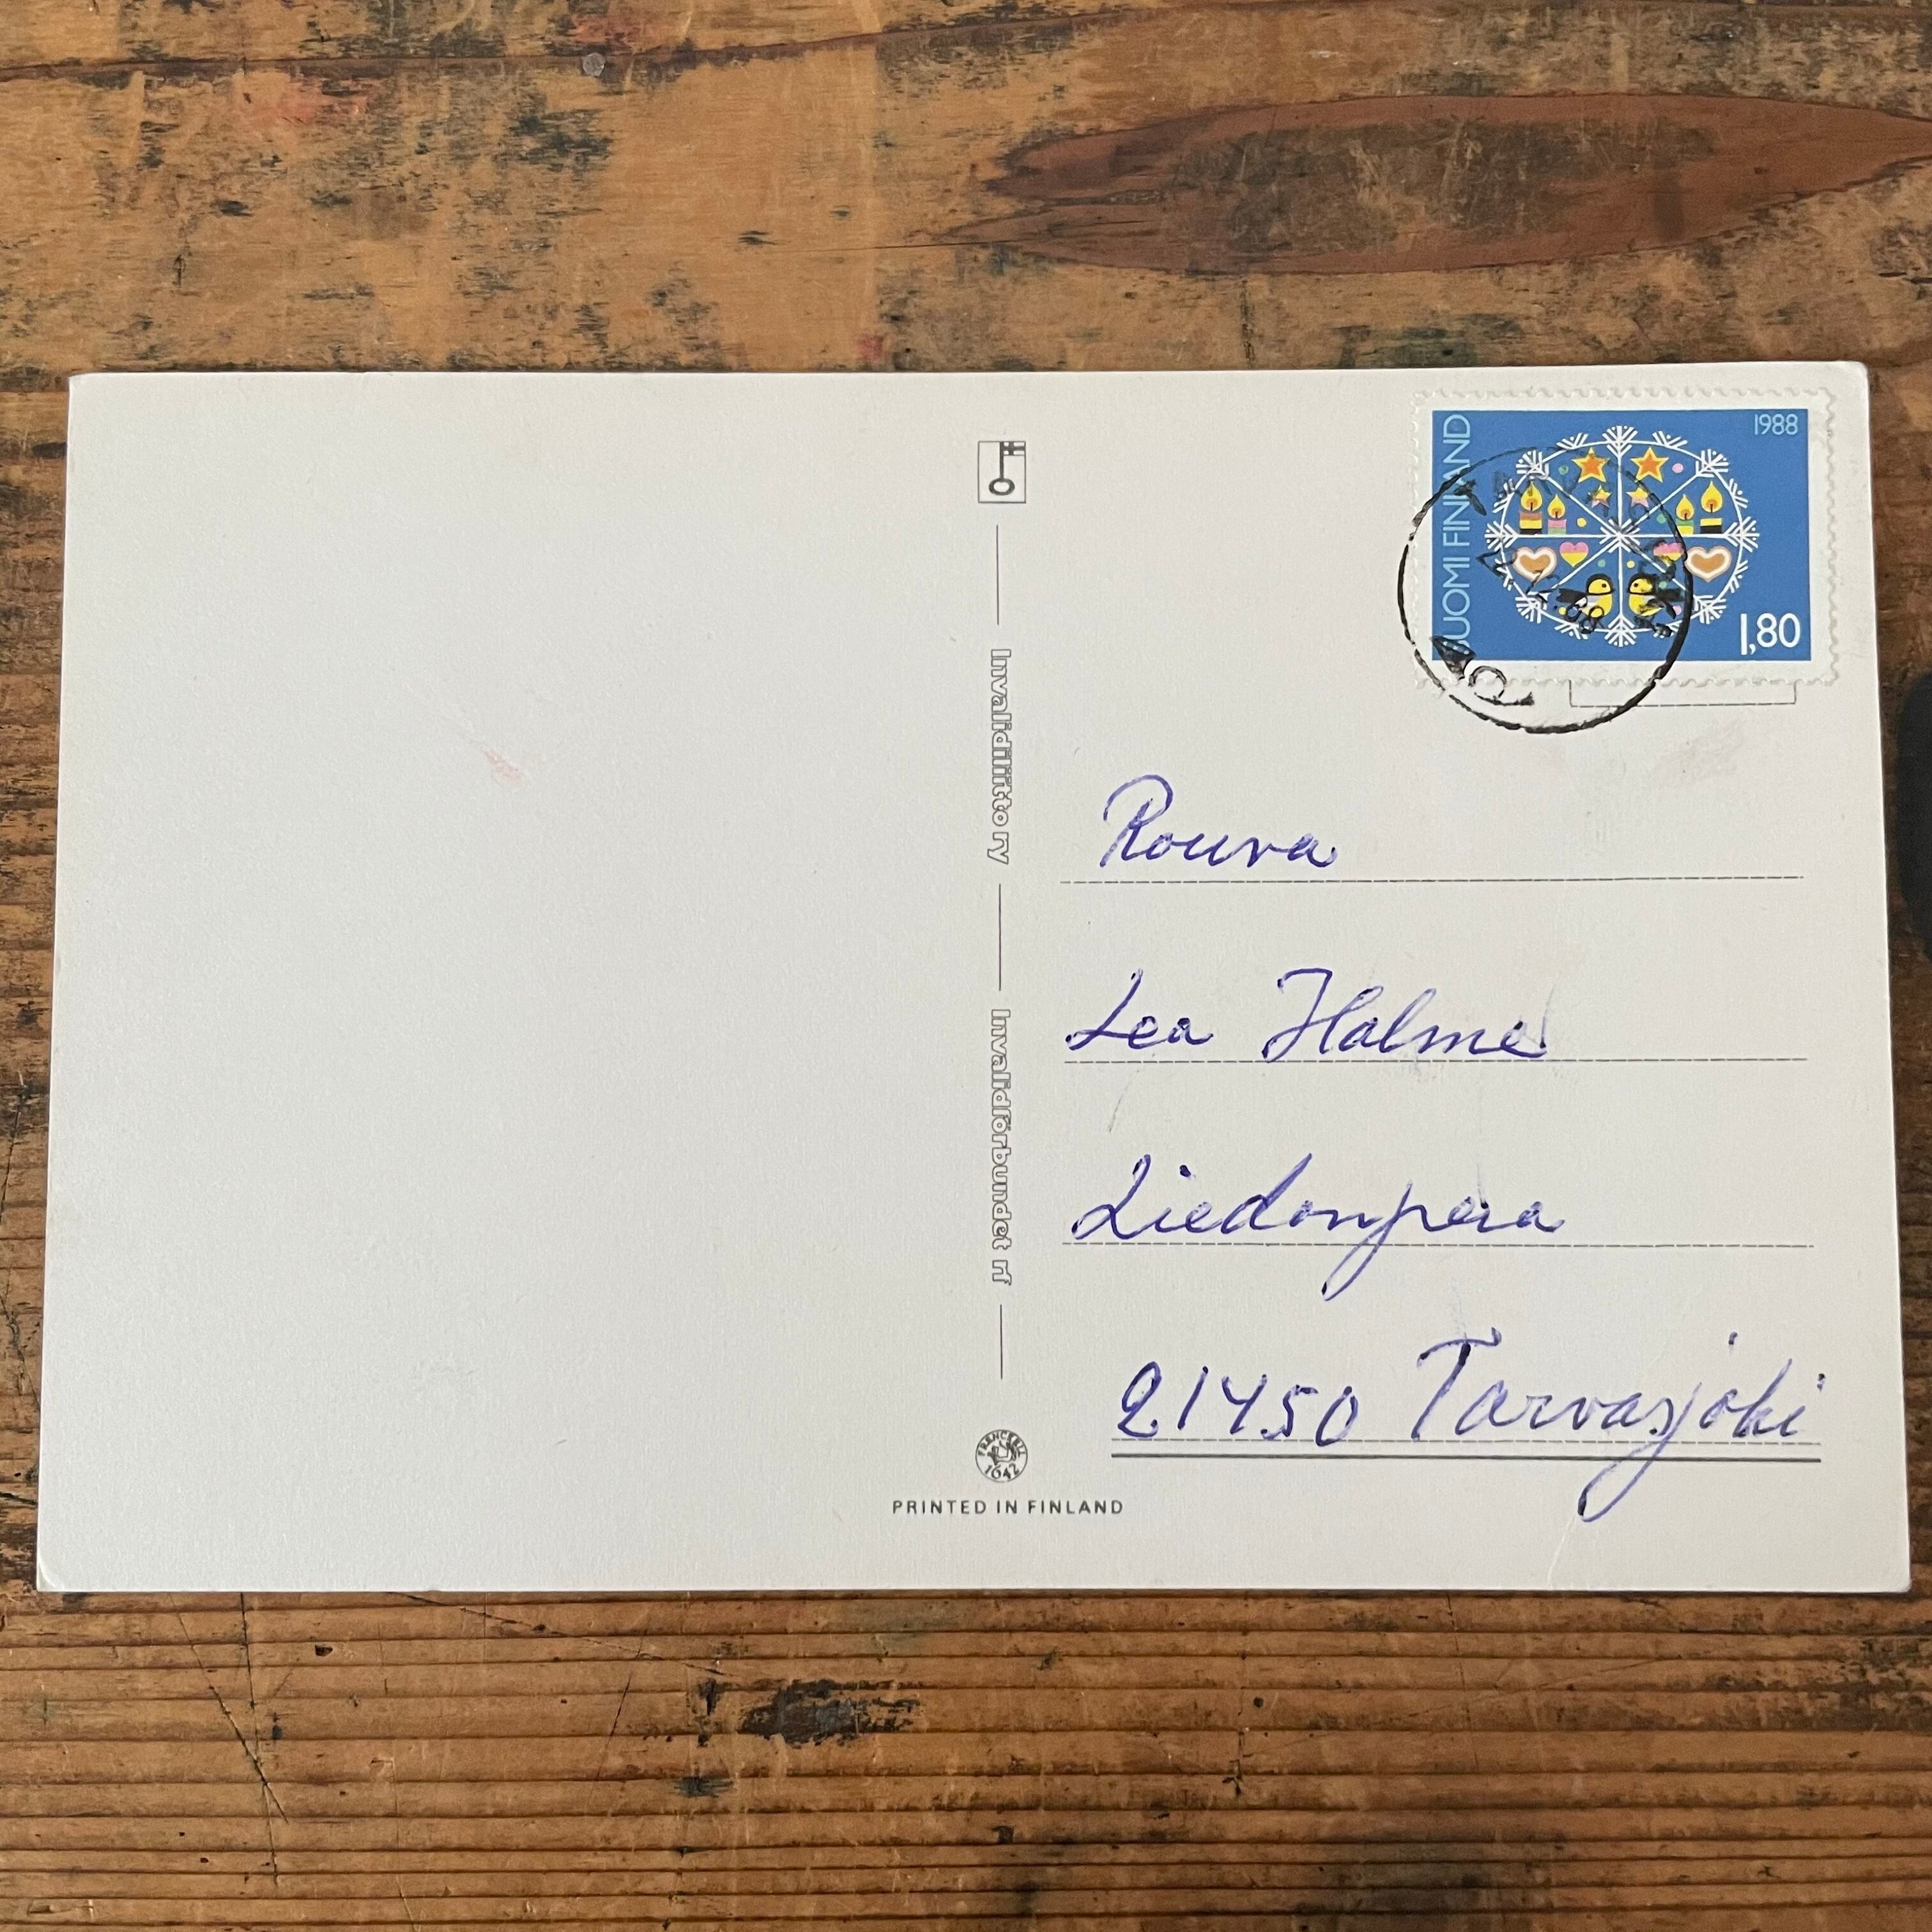 SUOMI FINLAND
1988
1,80
Invalidiliitto ry
Invalidförbundet rf
Rouva
Lea Halme
Liedonpera
21450 Tarvasjoki
FRENCKELL
1642
PRINTED IN FINLAND